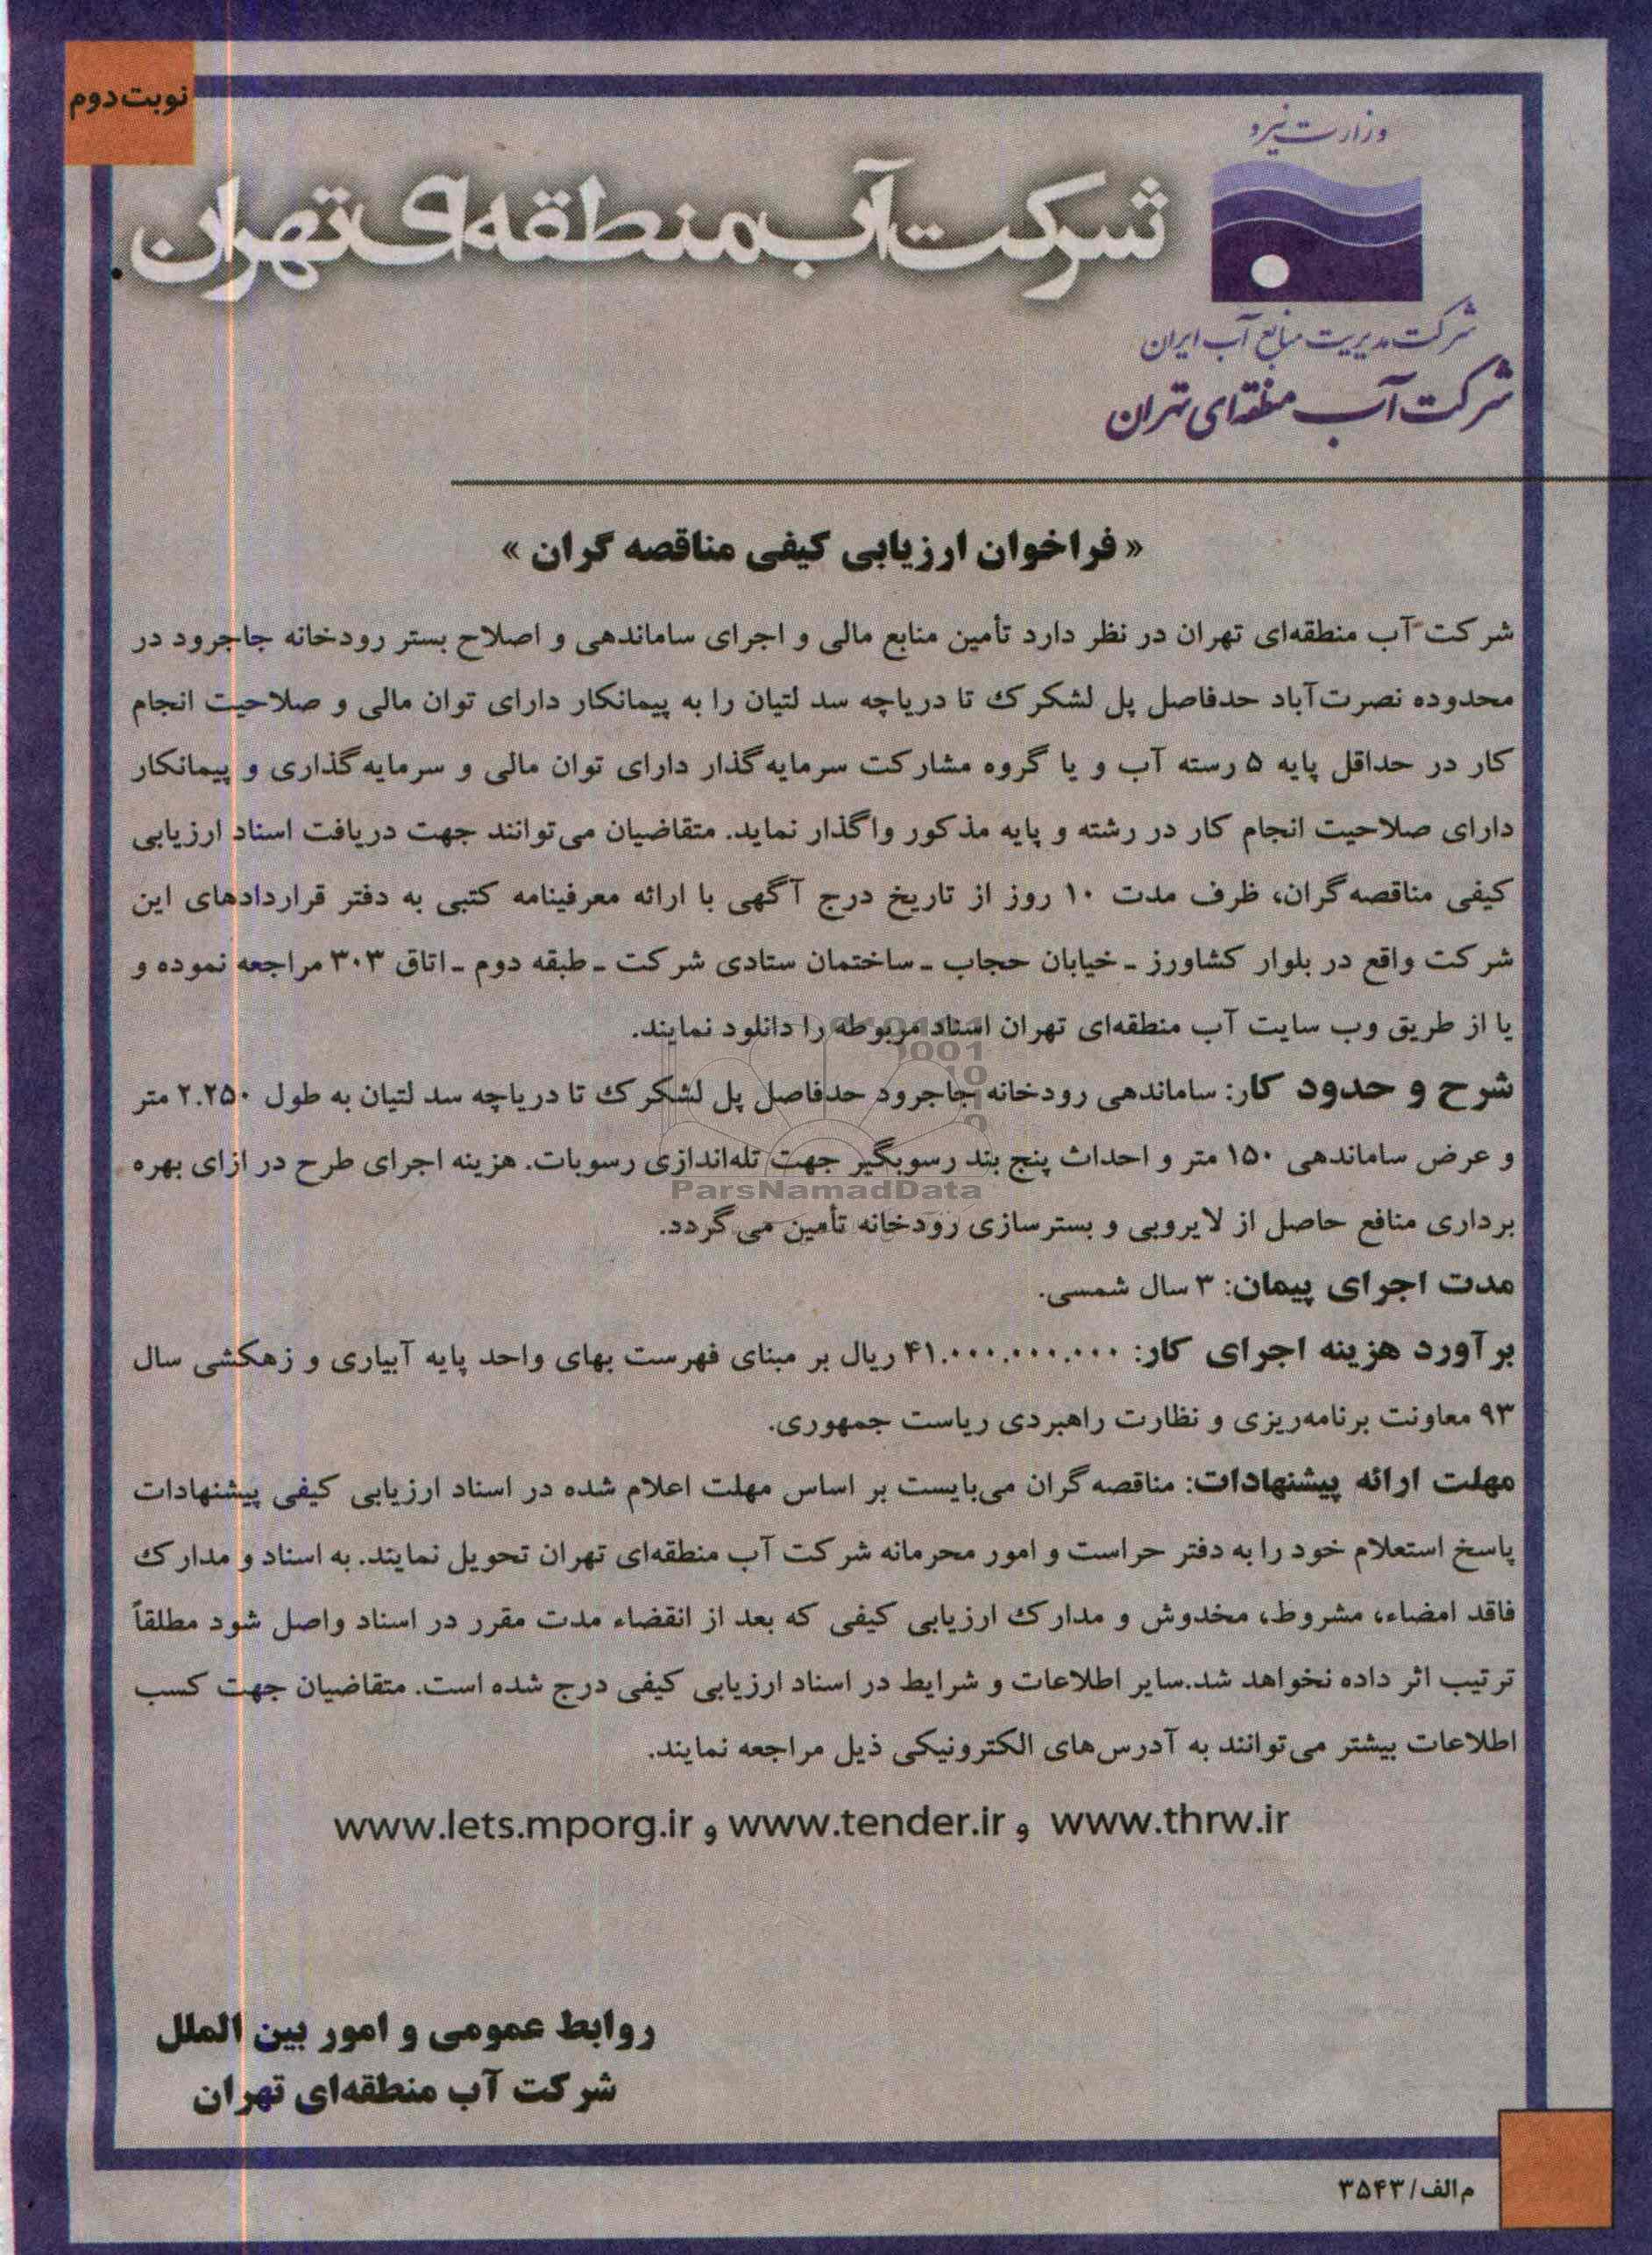 نوبت دوم
وزارت نیرو
شرکت آب منطقه‌ای تهران
شرکت مدیریت منابع آب ایران
شرکت آب منطقه‌ای تهران
« فراخوان ارزیابی کیفی مناقصه گران »
شرکت آب منطقه‌ای تهران در نظر دارد تأمین منابع مالی و اجرای ساماندهی و اصلاح بستر رودخانه جاجرود در
محدوده نصرت‌آباد حدفاصل پل لشکرک تا دریاچه سد لتیان را به پیمانکار دارای توان مالی و صلاحیت انجام
کار در حداقل پایه ۵ رسته آب و یا گروه مشارکت سرمایه‌گذار دارای توان مالی و سرمایه‌گذاری و پیمانکار
دارای صلاحیت انجام کار در رشته و پایه مذکور واگذار نماید. متقاضیان می‌توانند جهت دریافت اسناد ارزیابی
کیفی مناقصه‌گران، ظرف مدت ۱۰ روز از تاریخ درج آگهی با ارائه معرفینامه کتبی به دفتر قراردادهای این
شرکت واقع در بلوار کشاورز ـ خیابان حجاب ـ ساختمان ستادی شرکت ـ طبقه دوم ـ اتاق ۳۰۳ مراجعه نموده و
یا از طریق وب سایت آب منطقه‌ای تهران اسناد مربوطه را دانلود نمایند.
شرح و حدود کار: ساماندهی رودخانه جاجرود حدفاصل پل لشکرک تا دریاچه سد لتیان به طول ۲.۲۵۰ متر
و عرض ساماندهی ۱۵۰ متر و احداث پنج بند رسوبگیر جهت تله‌اندازی رسوبات. هزینه اجرای طرح در ازای بهره
ParsNamadData
برداری منافع حاصل از لایروبی و بسترسازی رودخانه تأمین می‌گردد.
مدت اجرای پیمان: ۳ سال شمسی.
برآورد هزینه اجرای کار: ۴۱.۰۰۰.۰۰۰.۰۰۰ ریال بر مبنای فهرست بهای واحد پایه آبیاری و زهکشی سال
۹۳ معاونت برنامه‌ریزی و نظارت راهبردی ریاست جمهوری.
مهلت ارائه پیشنهادات: مناقصه‌گران می‌بایست بر اساس مهلت اعلام شده در اسناد ارزیابی کیفی پیشنهادات
پاسخ استعلام خود را به دفتر حراست و امور محرمانه شرکت آب منطقه‌ای تهران تحویل نمایند. به اسناد و مدارک
فاقد امضاء، مشروط، مخدوش و مدارک ارزیابی کیفی که بعد از انقضاء مدت مقرر در اسناد واصل شود مطلقاً
ترتیب اثر داده نخواهد شد.سایر اطلاعات و شرایط در اسناد ارزیابی کیفی درج شده است. متقاضیان جهت کسب
اطلاعات بیشتر می‌توانند به آدرس‌های الکترونیکی ذیل مراجعه نمایند.
www.thrw.ir و www.tender.ir و www.lets.mporg.ir
روابط عمومی و امور بین الملل
شرکت آب منطقه‌ای تهران
م الف/۳۵۴۳